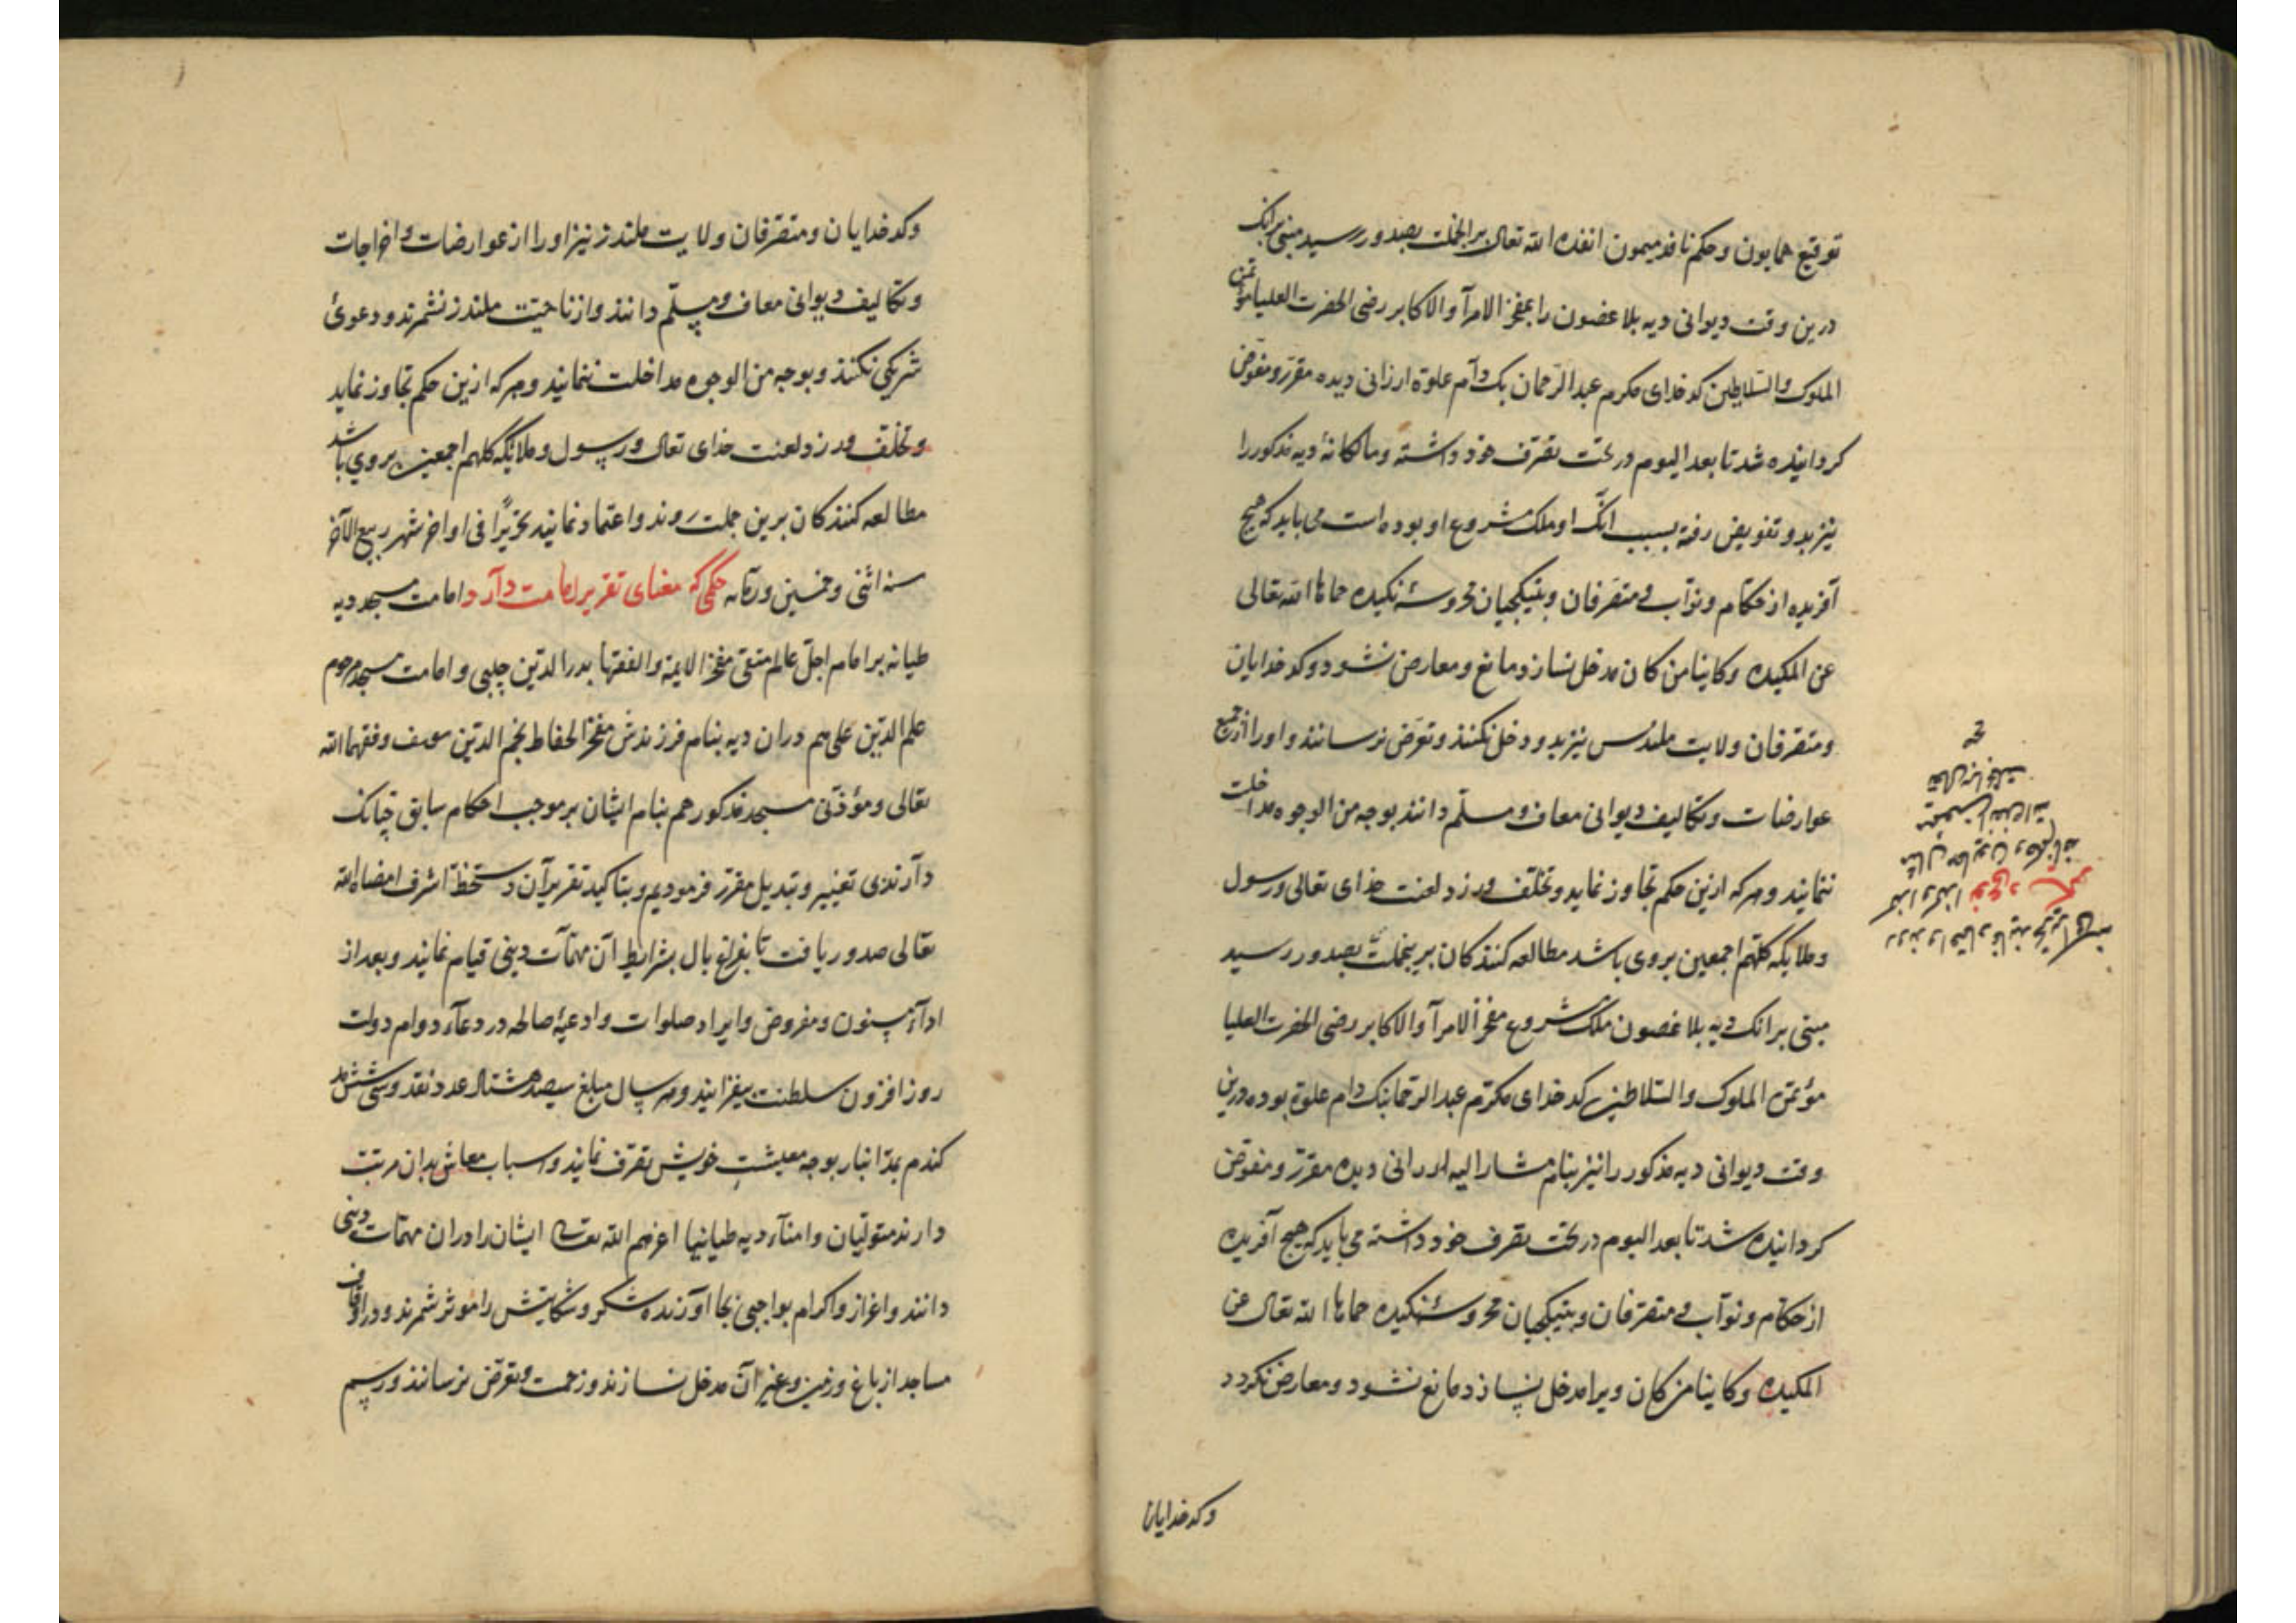 توقیع همایون و حکم نافذ میمون انفذه الله تعالی برانجملت بصدور رسید مبنی برانک
درین وقت دیوانی دیه بلا غصون را بمفخر الامرآ والاکابر رضی الحضرت العلیا مؤتمن
الملوک والسلاطین کدخدای مکرم عبدالرحمان بک دام علوّه ارزانی دیده مقرر و مفوّض
کردانیده شد تا بعد الیوم در تحت تصرف خود داشته و مالکانهٔ دیه مذکور را
نیز بدو تفویض رفته بسبب انک او ملک مشروع او بوده است می باید که هیچ
آفریده از حکّام و نوّاب و متصرفان و بتیکچیان محروسهٔ نکیده حماها الله تعالی
عن المکیده وکاینا من کان مدخل نسازد و مانع و معارض نشود و کدخدایان
و متصرفان ولایت ملندس نیز بدو دخل نکنند و تعرّض نرسانند و او را از جمیع
عوارضات و تکالیف دیوانی معاف و مسلّم دانند بوجه من الوجوه مداخلت
ننمایند و هرکه ازین حکم تجاوز نماید و تخلّف ورزد لعنت خذای تعالی و رسول
و ملایکه کلّهم اجمعین بروی باشد مطالعه کنندکان برینجملت بصدور رسید
مبنی برانک دیه بلا غصون ملک مشروع مفخر الامرآ والاکابر رضی الحضرت العلیا
مؤتمن الملوک والسّلاطین کدخدای مکرّم عبدالرحمانبک دام علوّه بوده درین
وقت دیوانی دیه مذکور را نیز بنام مشار الیه ارزانی دیده مقرّر و مفوّض
کردانیده شد تا بعد الیوم در تحت تصرف خود داشته می باید که هیچ آفریده
از حکّام و نوّاب و متصرّفان و بتیکچیان محروسهٔ نکیده حماها الله تعالی عن
المکیده وکاینا من کان ویرا مدخل نسازد و مانع نشود و معارض نکردد
وکدخدایان
روند و اعتماد نمایند تحریرًا فی
نوعی د
مثال همایون و حکم نافذ
میمون انفذه الله
تعالی برانجملت
وکدخدایان و متصرّفان ولایت ملندز نیز او را از عوارضات و اخراجات
و تکالیف دیوانی معاف و مسلّم دانند و از ناحیت ملندز نشمرند و دعوئ
شریکی نکنند و بوجه من الوجوه مداخلت ننمایند و هرکه ازین حکم تجاوز نماید
و تخلّف ورزد لعنت خذای تعالی و رسول و ملایکه کلهم اجمعین بروی باشد
مطالعه کنندکان برین جملت روند و اعتماد نمایند تحریرًا فی اواخر شهر ربیع الآخر
سنه اثنی و خمسین حکمی که معنای تقریر امامت دآرد امامت مسجد دیه
طیانه بر امام اجلّ عالم متقی مفخر الایمه والفقها بدر الدّین چلبی و امامت مسجد مرحوم
علم الدّین علی هم دران دیه بنام فرزندش مفخر الحفاظ نجم الدّین یوسف وفقهما الله
تعالی و مؤذّنی مسجد مذکور هم بنام ایشان بر موجب احکام سابق چنانک
دآرند بی تغییر و تبدیل مقرّر فرمودیم و بتاکید تقریرآن دستخط اشرف امضاه الله
تعالی صدور یافت تا بفراغ بال بشرایط آن مهمّآت دینی قیام نمایند و بعد از
ادآء مسنون و مفروض و ایراد صلوات و ادعیهٔ صالحه در دعآء دوام دولت
روز افزون سلطنت بیفزایند و هر سال مبلغ سیصد هشتاد عدد نقد و سی شش مد
کندم بمدّ انبار بوجه معیشتِ خویش تصرّف نمایند و اسباب معاش بدان مرتّب
دارند متولّیان و امنآء دیه طیانیا اعزهم الله تعالی ایشانرا دران مهمّات دینی
دانند و اعزاز و اکرام بواجبی بجا آورند شکر و شکایتش را مؤثر شمرند و در اوقاف
مساجد از باغ و زمین و غیر آن مدخل نسازند و زحمت و تعرّض نرسانند و رسم